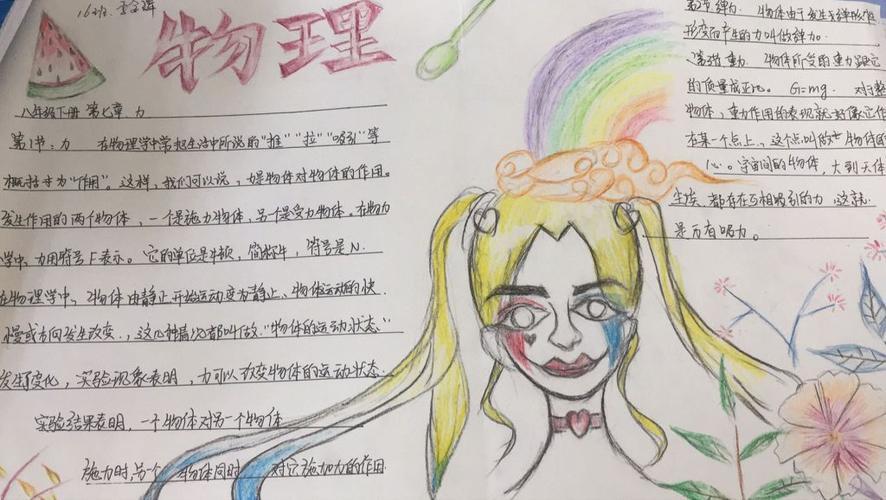 16班
物理
八年级下册 第七章 力
第1节：力 在物理学中常把生活中所说的“推”“拉”“吸引”等
概括为“作用”。这样，我们可以说，力是物体对物体的作用。
发生作用的两个物体，一个是施力物体，另个是受力物体。在物力
学中，力用符号F表示。它的单位是牛顿，简称牛，符号是N.
在物理学中，物体由静止开始运动变为静止、物体运动的快
慢或方向发生改变.，这几种情况都叫做.“物体的运动状态.”
发生了变化，实验现象表明，力可以改变物体的运动状态.
实验结果表明，一个物体对另一个物体
施力时，另个 物体同时 对它施加力的作用.
弹力. 物体由于发生弹性
形变而产生的力叫做弹力.
重力. 物体所受的重力跟它
的质量成正比. G=mg. 对于整
物体，重力作用的表现就好像它作
在某一个点上.，这个点叫做 物体的
心。宇宙间的物体，大到天体
尘埃，都存在互相吸引的力，这就.
是万有吸力。